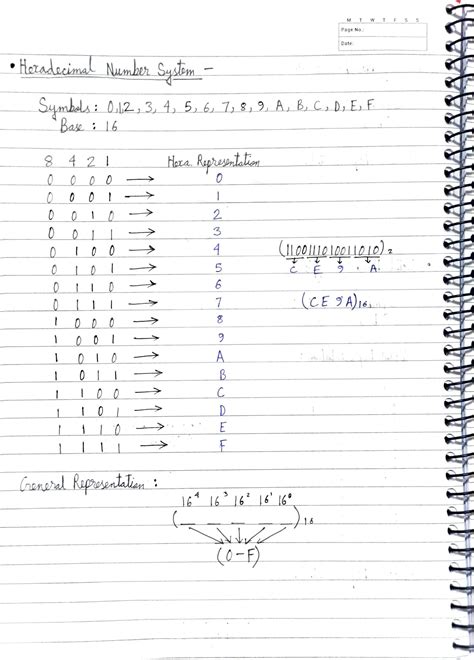 M T W T F S S
Page No.:
Date:
• Hexadecimal Number System –
Symbols : 0,1,2, 3, 4, 5, 6, 7, 8, 9, A, B, C, D, E, F
Base : 16
8 4 2 1 Hexa Representation
0 0 0 0 → 0
0 0 0 1 → 1
0 0 1 0 → 2
0 0 1 1 → 3
0 1 0 0 → 4
0 1 0 1 → 5
0 1 1 0 → 6
0 1 1 1 → 7
1 0 0 0 → 8
1 0 0 1 → 9
1 0 1 0 → A
1 0 1 1 → B
1 1 0 0 → C
1 1 0 1 → D
1 1 1 0 → E
1 1 1 1 → F
(1100111010011010)₂
C E 9 A
(CE9A)₁₆
General Representation :
16⁴ 16³ 16² 16¹ 16⁰
( _ _ _ _ _ )₁₆
(0-F)